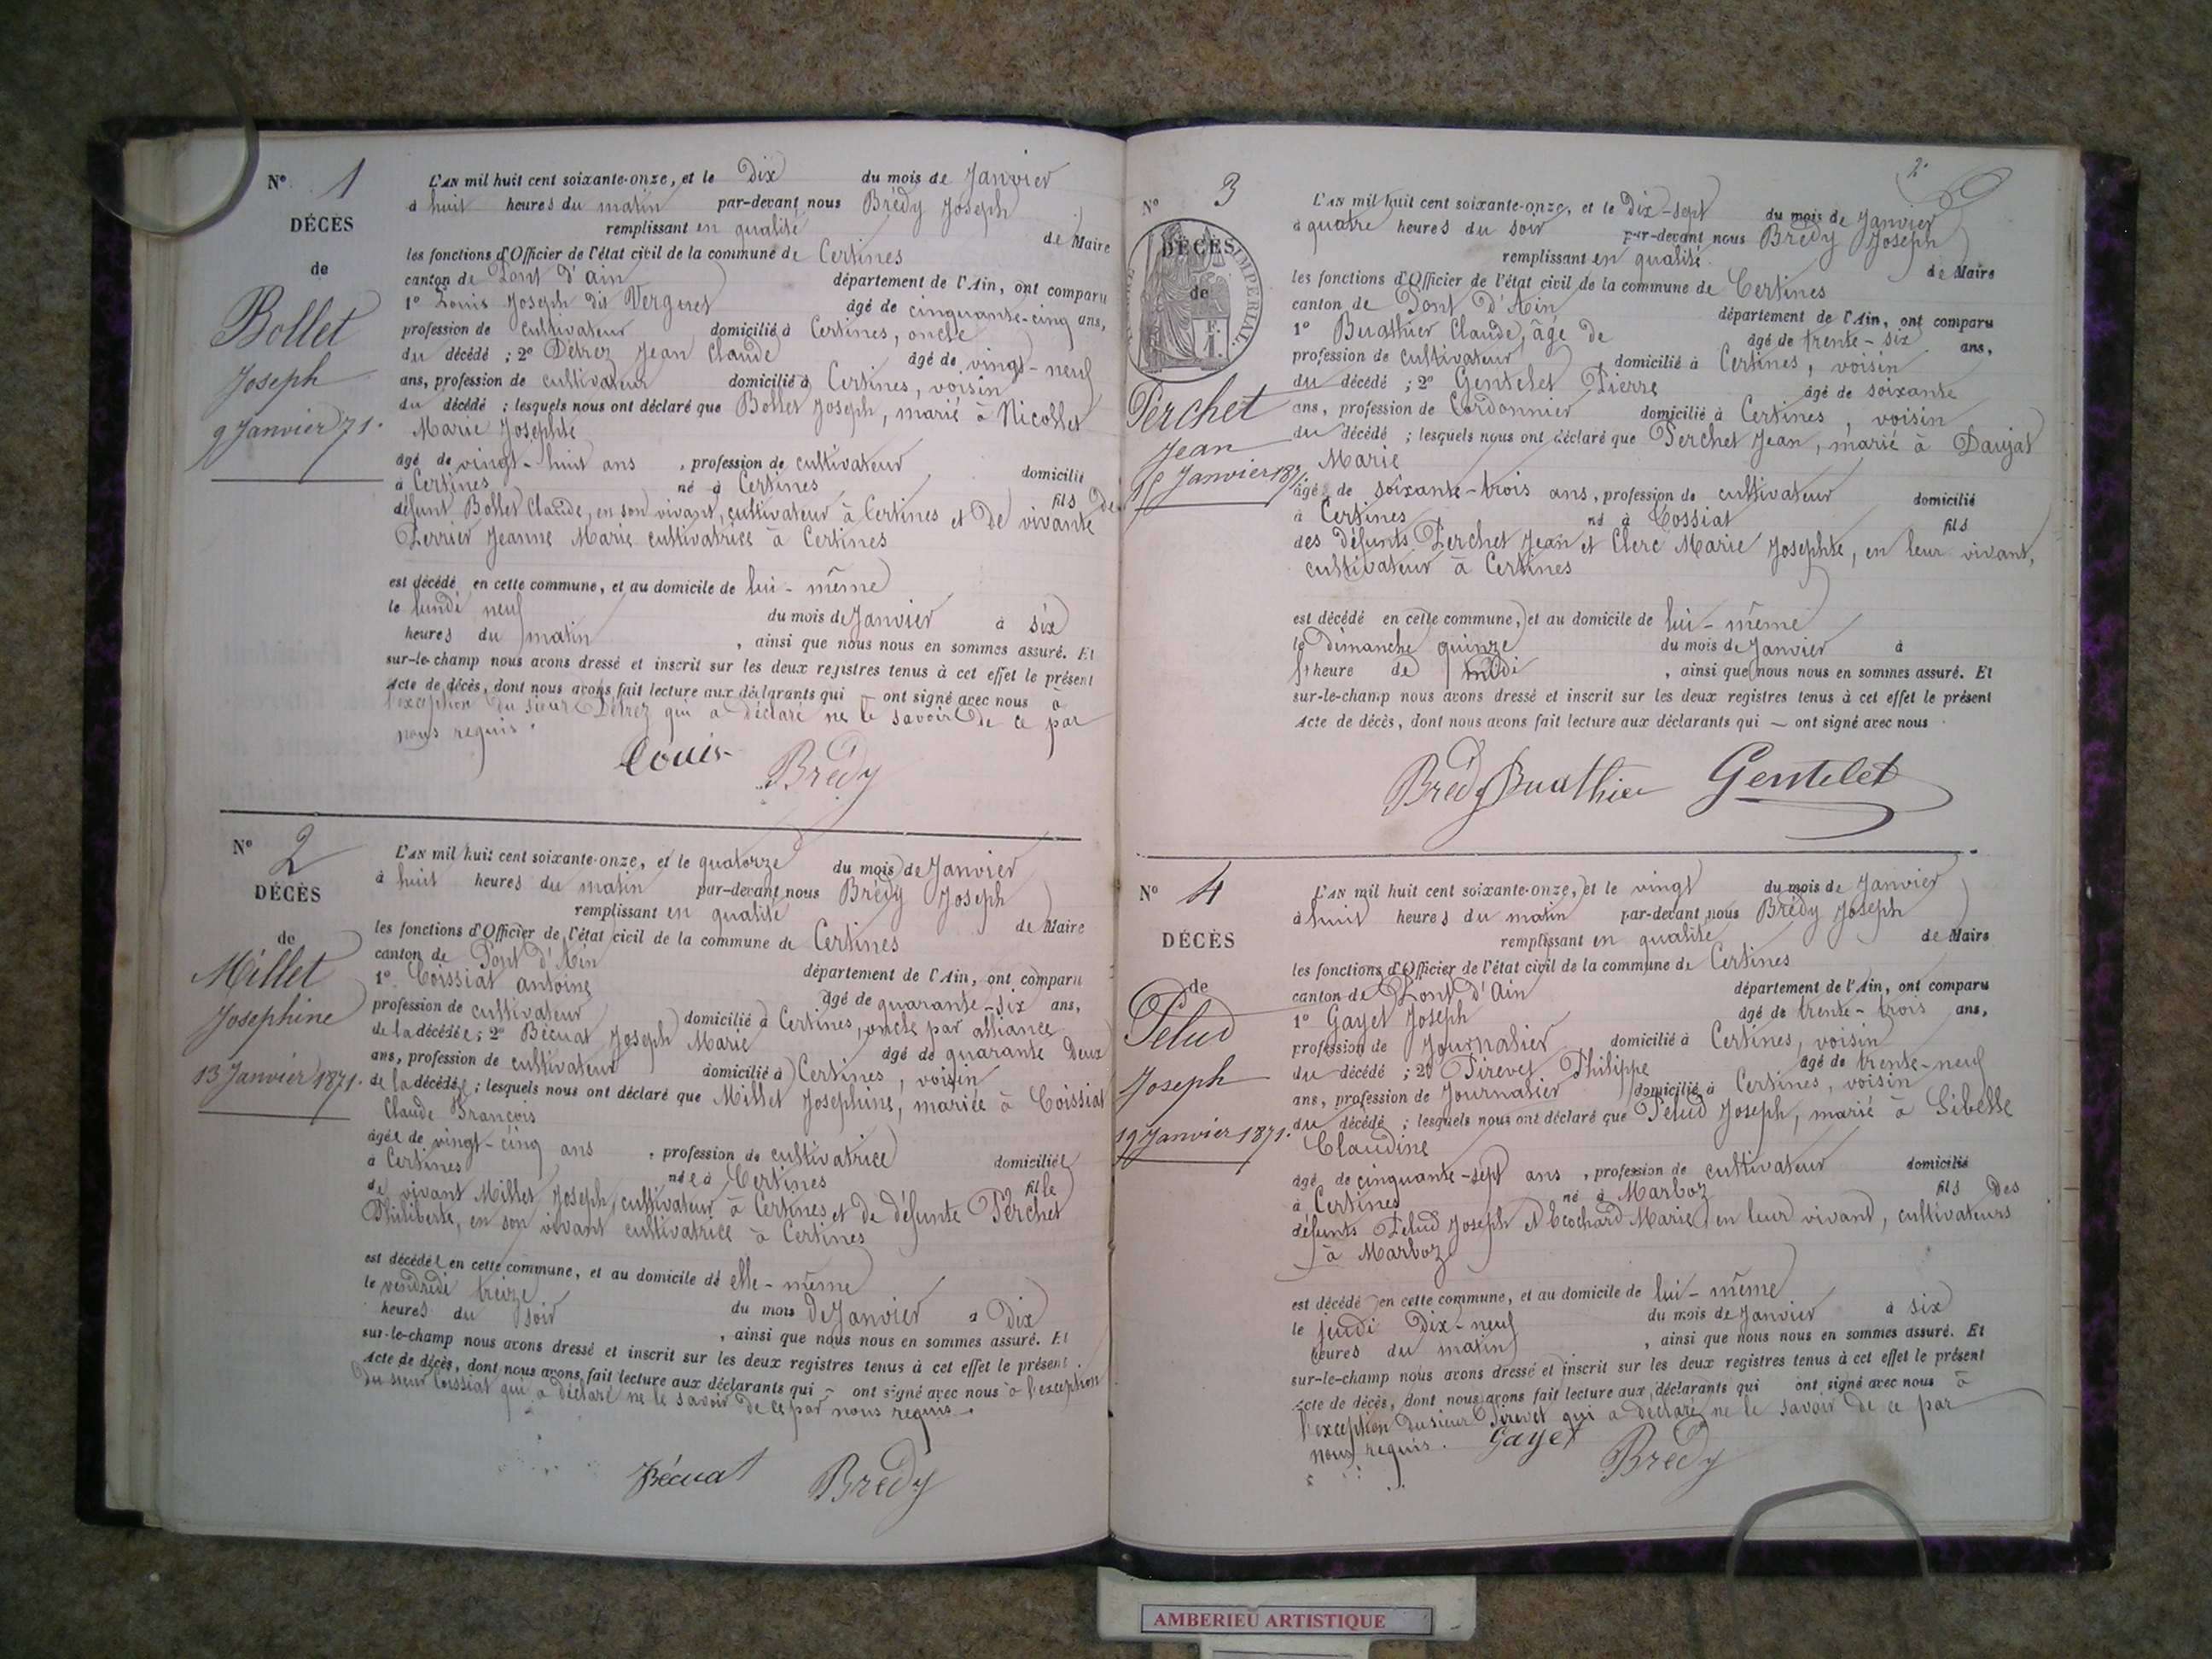 N° 1
DÉCÈS
de
Bollet
Joseph
9 Janvier 71.
L'AN mil huit cent soixante-onze, et le Dix du mois de Janvier
à huit heures du matin par-devant nous Brédy Joseph
remplissant en qualité de Maire
les fonctions d'Officier de l'état civil de la commune de Certines
canton de Pont d'ain département de l'Ain, ont comparu
1° Louis Joseph dit Vergeret âgé de cinquante-cinq ans,
profession de cultivateur domicilié à Certines, oncle
du décédé ; 2° Détrez Jean Claude âgé de vingt-neuf
ans, profession de cultivateur domicilié à Certines, voisin
du décédé ; lesquels nous ont déclaré que Bollet Joseph, marié à Nicollet
Marie Josephte
âgé de vingt-huit ans, profession de cultivateur domicilié
à Certines né à Certines fils de
défunt Bollet Claude, en son vivant, cultivateur à Certines et De vivante
Perrier Jeanne Marie cultivatrice à Certines
est décédé en cette commune, et au domicile de lui-même
le lundi neuf du mois de Janvier à six
heures du matin, ainsi que nous nous en sommes assuré. Et
sur-le-champ nous avons dressé et inscrit sur les deux registres tenus à cet effet le présent
Acte de décès, dont nous avons fait lecture aux déclarants qui — ont signé avec nous à
l'exception du sieur Détrez qui a déclaré ne le savoir De ce par
nous requis.
Louis Brédy
N° 2
DÉCÈS
de
Millet
Josephine
13 Janvier 1871.
L'AN mil huit cent soixante-onze, et le quatorze du mois de Janvier
à huit heures du matin par-devant nous Brédy Joseph
remplissant en qualité de Maire
les fonctions d'Officier de l'état civil de la commune de Certines
canton de Pont d'Ain département de l'Ain, ont comparu
1° Coissiat antoine âgé de quarante-six ans,
profession de cultivateur domicilié à Certines, oncle par alliance
de la décédée ; 2° Bécuat Joseph Marie âgé de quarante Deux
ans, profession de cultivateur domicilié à Certines, voisin
de la décédée ; lesquels nous ont déclaré que Millet Josephine, mariée à Coissiat
Claude François
âgée de vingt-cinq ans, profession de cultivatrice domiciliée
à Certines née à Certines fille
de vivant Millet Joseph, cultivateur à Certines et de défunte Perchet
Philiberte, en son vivant cultivatrice à Certines
est décédée en cette commune, et au domicile de elle-même
le vendredi treize du mois de Janvier à Dix
heures du soir, ainsi que nous nous en sommes assuré. Et
sur-le-champ nous avons dressé et inscrit sur les deux registres tenus à cet effet le présent
Acte de décès, dont nous avons fait lecture aux déclarants qui — ont signé avec nous à l'exception
Du sieur Coissiat qui a déclaré ne le savoir De ce par nous requis.
Bécuat Brédy
2
N° 3
DÉCÈS
de
IMPERIAL
Perchet
Jean
15 Janvier 1871.
L'AN mil huit cent soixante-onze, et le Dix-sept du mois de Janvier
à quatre heures du soir par-devant nous Brédy Joseph
remplissant en qualité de Maire
les fonctions d'Officier de l'état civil de la commune de Certines
canton de Pont d'Ain département de l'Ain, ont comparu
1° Buathier Claude, âgé de âgé de trente-six ans,
profession de cultivateur, domicilié à Certines, voisin
du décédé ; 2° Gentelet Pierre âgé de soixante
ans, profession de Cordonnier domicilié à Certines, voisin
du décédé ; lesquels nous ont déclaré que Perchet Jean, marié à Daujat
Marie
âgé de soixante-trois ans, profession de cultivateur domicilié
à Certines né à Tossiat fils
des défunts Perchet Jean et Clerc Marie Josephte, en leur vivant,
cultivateur à Certines
est décédé en cette commune, et au domicile de lui-même
le dimanche quinze du mois de Janvier à
l'heure de midi, ainsi que nous nous en sommes assuré. Et
sur-le-champ nous avons dressé et inscrit sur les deux registres tenus à cet effet le présent
Acte de décès, dont nous avons fait lecture aux déclarants qui — ont signé avec nous.
Brédy Buathier Gentelet
N° 4
DÉCÈS
de
Pelud
Joseph
19 Janvier 1871.
L'AN mil huit cent soixante-onze, et le vingt du mois de Janvier
à huit heures du matin par-devant nous Brédy Joseph
remplissant en qualité de Maire
les fonctions d'Officier de l'état civil de la commune de Certines
canton de Pont d'Ain département de l'Ain, ont comparu
1° Gayet Joseph âgé de trente-trois ans,
profession de Journalier domicilié à Certines, voisin
du décédé ; 2° Pirevet Philippe âgé de trente-neuf
ans, profession de Journalier domicilié à Certines, voisin
du décédé ; lesquels nous ont déclaré que Pelud Joseph, marié à Sibelle
Claudine
âgé de cinquante-sept ans, profession de cultivateur domicilié
à Certines né à Marboz fils Des
défunts Pelud Joseph et Ecochard Marie en leur vivant, cultivateurs
à Marboz
est décédé en cette commune, et au domicile de lui-même
le jeudi Dix-neuf du mois de Janvier à six
heures du matin, ainsi que nous nous en sommes assuré. Et
sur-le-champ nous avons dressé et inscrit sur les deux registres tenus à cet effet le présent
Acte de décès, dont nous avons fait lecture aux déclarants qui ont signé avec nous à
l'exception Du sieur Pirevet qui a déclaré ne le savoir De ce par
nous requis. Gayet Brédy
AMBERIEU ARTISTIQUE